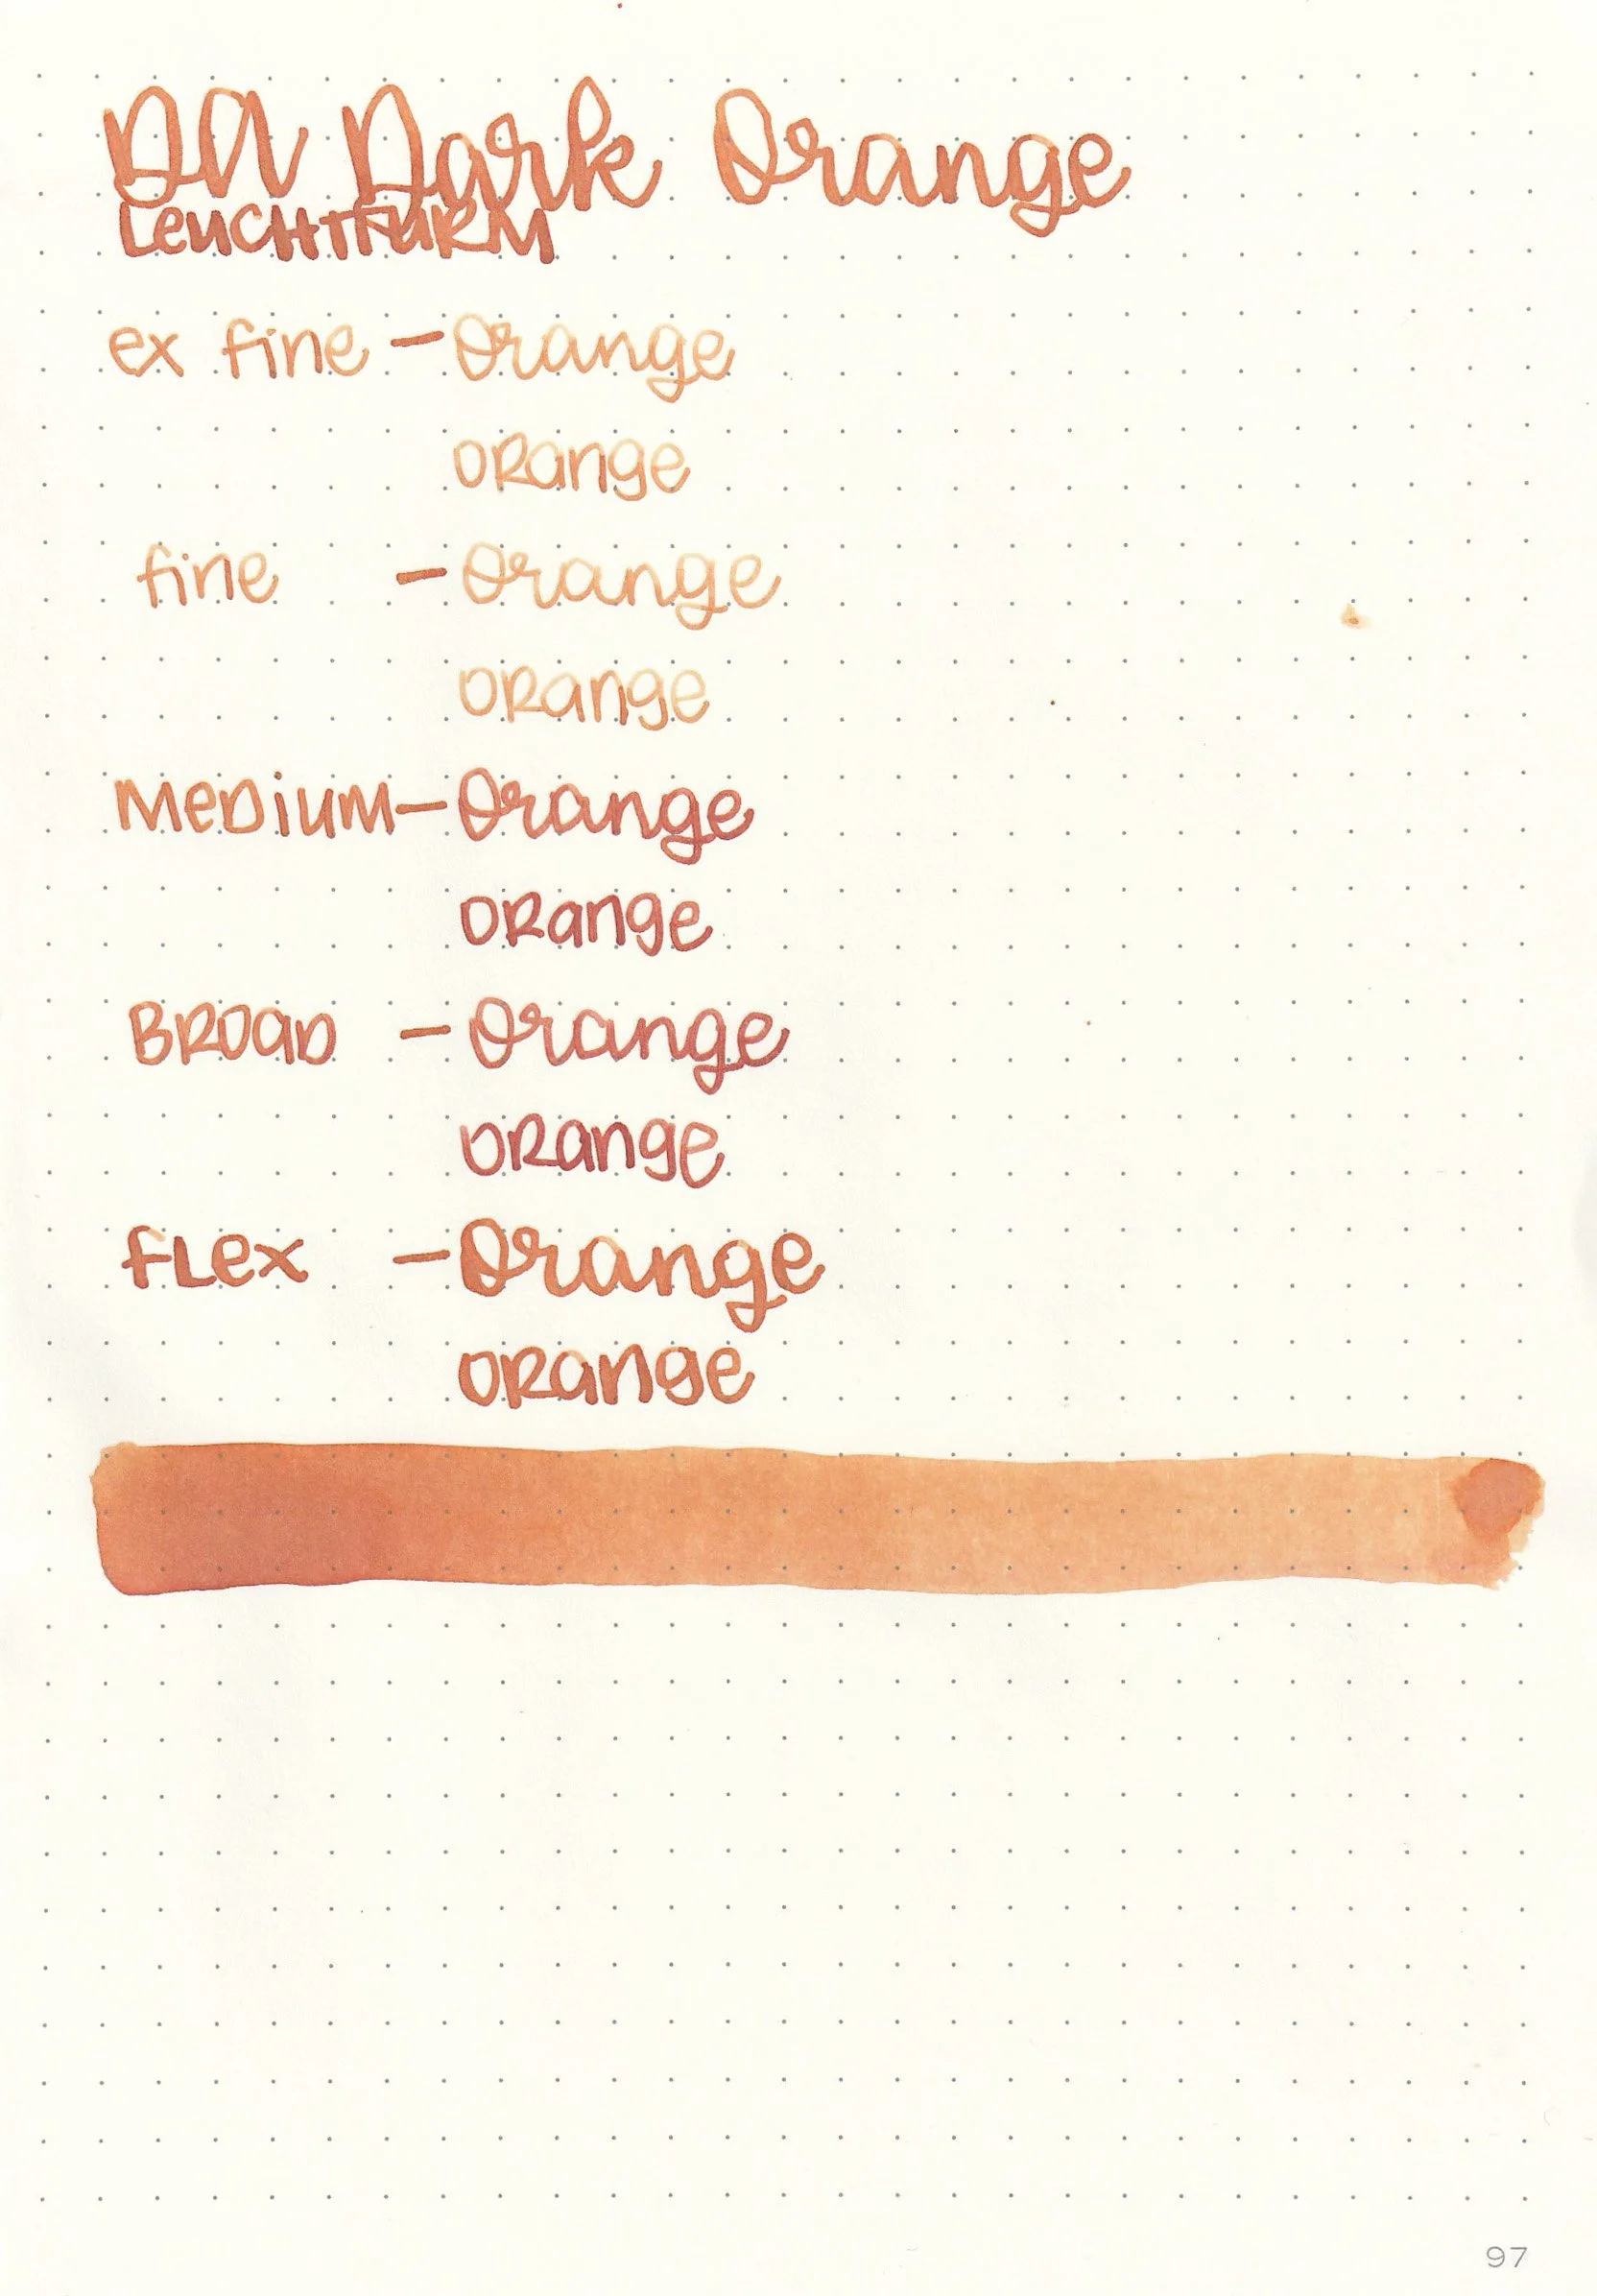 DA Dark Orange
LeuchtturM
ex fine - Orange
orange
fine - Orange
orange
Medium - Orange
orange
Broad - Orange
orange
flex - Orange
orange
97